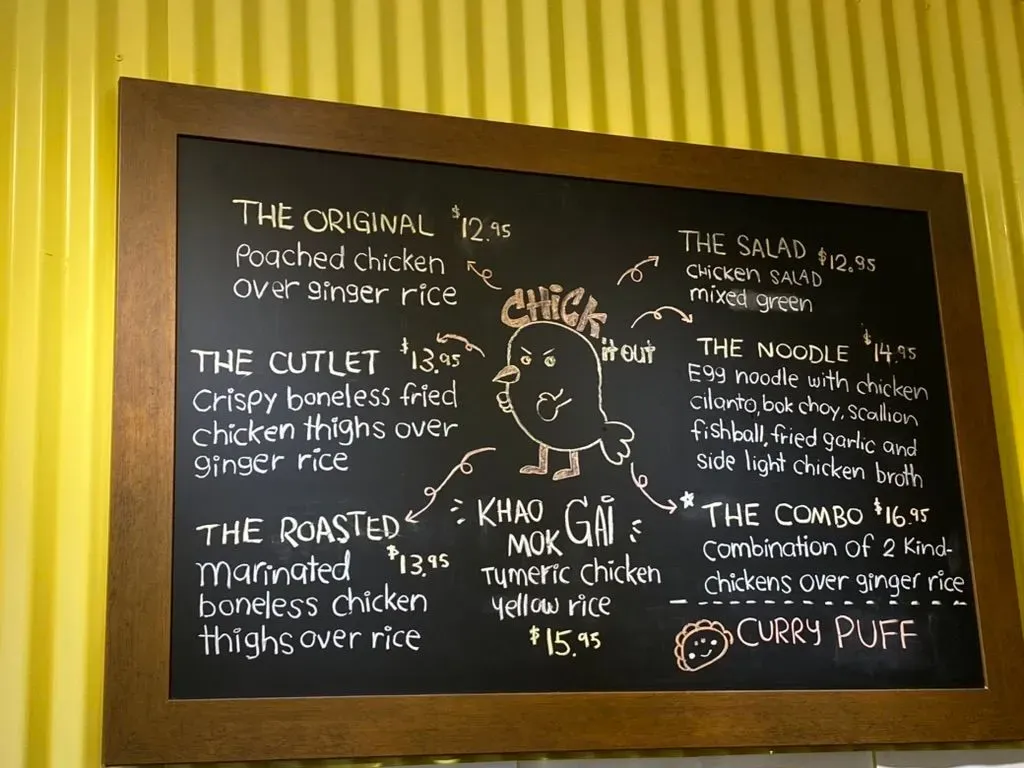 THE ORIGINAL $12.95
Poached chicken
over ginger rice
THE CUTLET $13.95
Crispy boneless fried
chicken thighs over
ginger rice
THE ROASTED
$13.95
marinated
boneless chicken
thighs over rice
CHICK
it out
KHAO
MOK GAI
Tumeric chicken
yellow rice
$15.95
THE SALAD $12.95
CHICKEN SALAD
mixed green
THE NOODLE $14.95
Egg noodle with chicken
cilanto, bok choy, scallion
fishball, fried garlic and
side light chicken broth
THE COMBO $16.95
Combination of 2 Kind-
chickens over ginger rice
CURRY PUFF